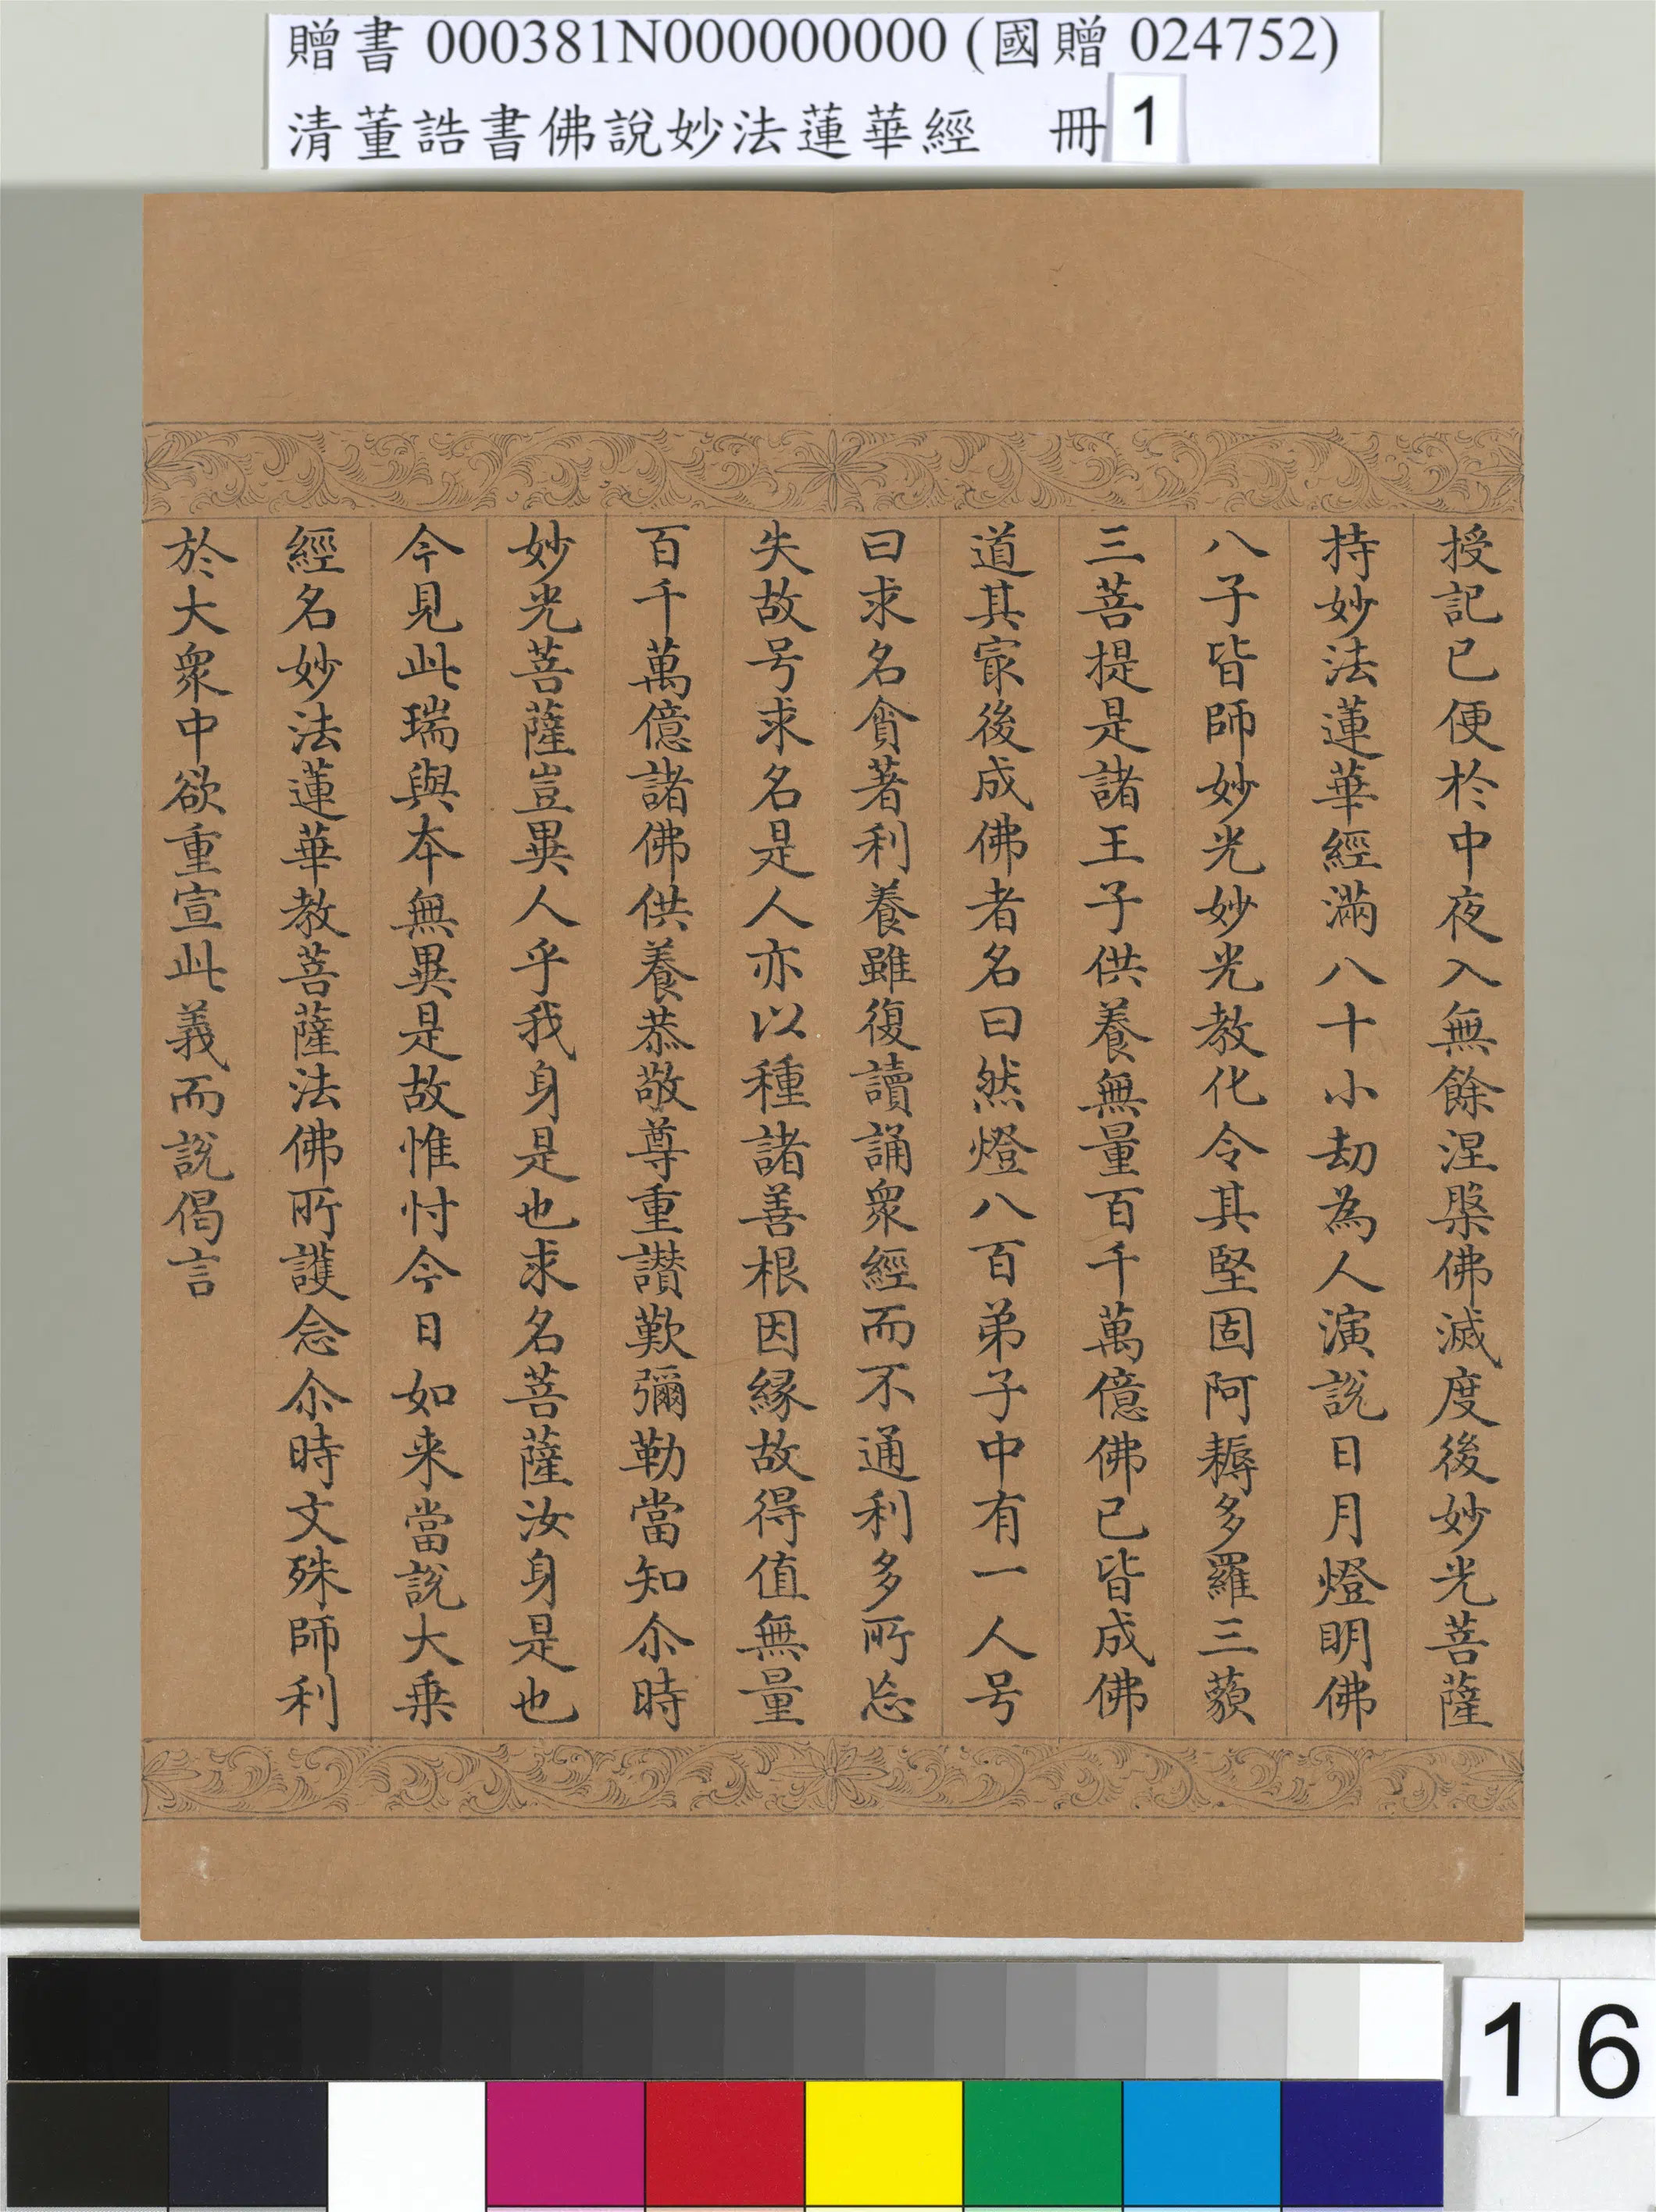 贈書 000381N000000000 (國贈 024752)
清董誥書佛說妙法蓮華經 冊 1
授記已便於中夜入無餘涅槃佛滅度後妙光菩薩
持妙法蓮華經滿八十小劫為人演說日月燈明佛
八子皆師妙光妙光教化令其堅固阿耨多羅三藐
三菩提是諸王子供養無量百千萬億佛已皆成佛
道其冣後成佛者名曰然燈八百弟子中有一人号
曰求名貪著利養雖復讀誦衆經而不通利多所忘
失故号求名是人亦以種諸善根因緣故得值無量
百千萬億諸佛供養恭敬尊重讚歎彌勒當知尒時
妙光菩薩豈異人乎我身是也求名菩薩汝身是也
今見此瑞與本無異是故惟忖今日如来當說大乗
經名妙法蓮華教菩薩法佛所護念尒時文殊師利
於大衆中欲重宣此義而說偈言
16